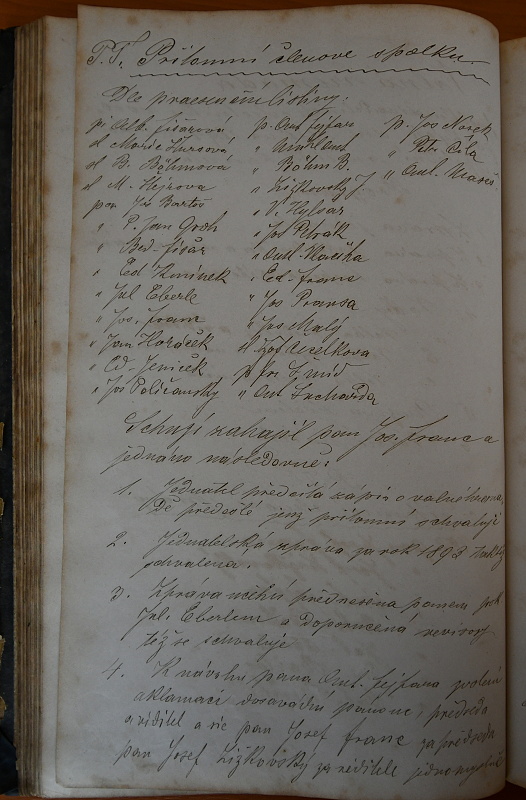 T.T. Přítomní členove spolku.
Dle praesenční listiny.
pí Alb. Šišařová
sl Marie Kursová
sl B. Böhmová
sl M. Hejnova
pan Jos Bartoš
" P. Jan Groh
" Bed. Šišař
" Ed Kmínek
" Jul Eberle
" Jos. Franc
" Jan Horáček
" Ed. Jeníček
" Jos Poličanský
p. Ant Fejfar
" Ant
" Böhm B.
" Žižkovský J.
" V. Hylmar
" Jos Petrák
" Ant. Hlavička
" Ed. Franc
" Jos Pransa
" Jos Malý
sl Žof Učelkova
p Fr. Šmíd
" Ant Suchařda
p. Jos Nosek
" Petr Cila
" Ant. Mareš
Schůzi zahájil pan Jos. Franc a
jednáno následovně:
1. Jednatel předčítá zápis o valné hroma
dě předešlé jenž přítomní schvalují
2. Jednatelská zpráva za rok 1893 taktéž
schvalena.
3. Zpráva účetní přednesena panem pok
Jul. Eberlem a doporučená revisory
též se schvaluje
4. K návrhu pana Ant. Fejfara zvoleni
aklamací dosavádní pánové, předseda
a ředitel a sic pan Josef Franc za předsedu
pan Josef Žižkovský za ředitele jednomyslně